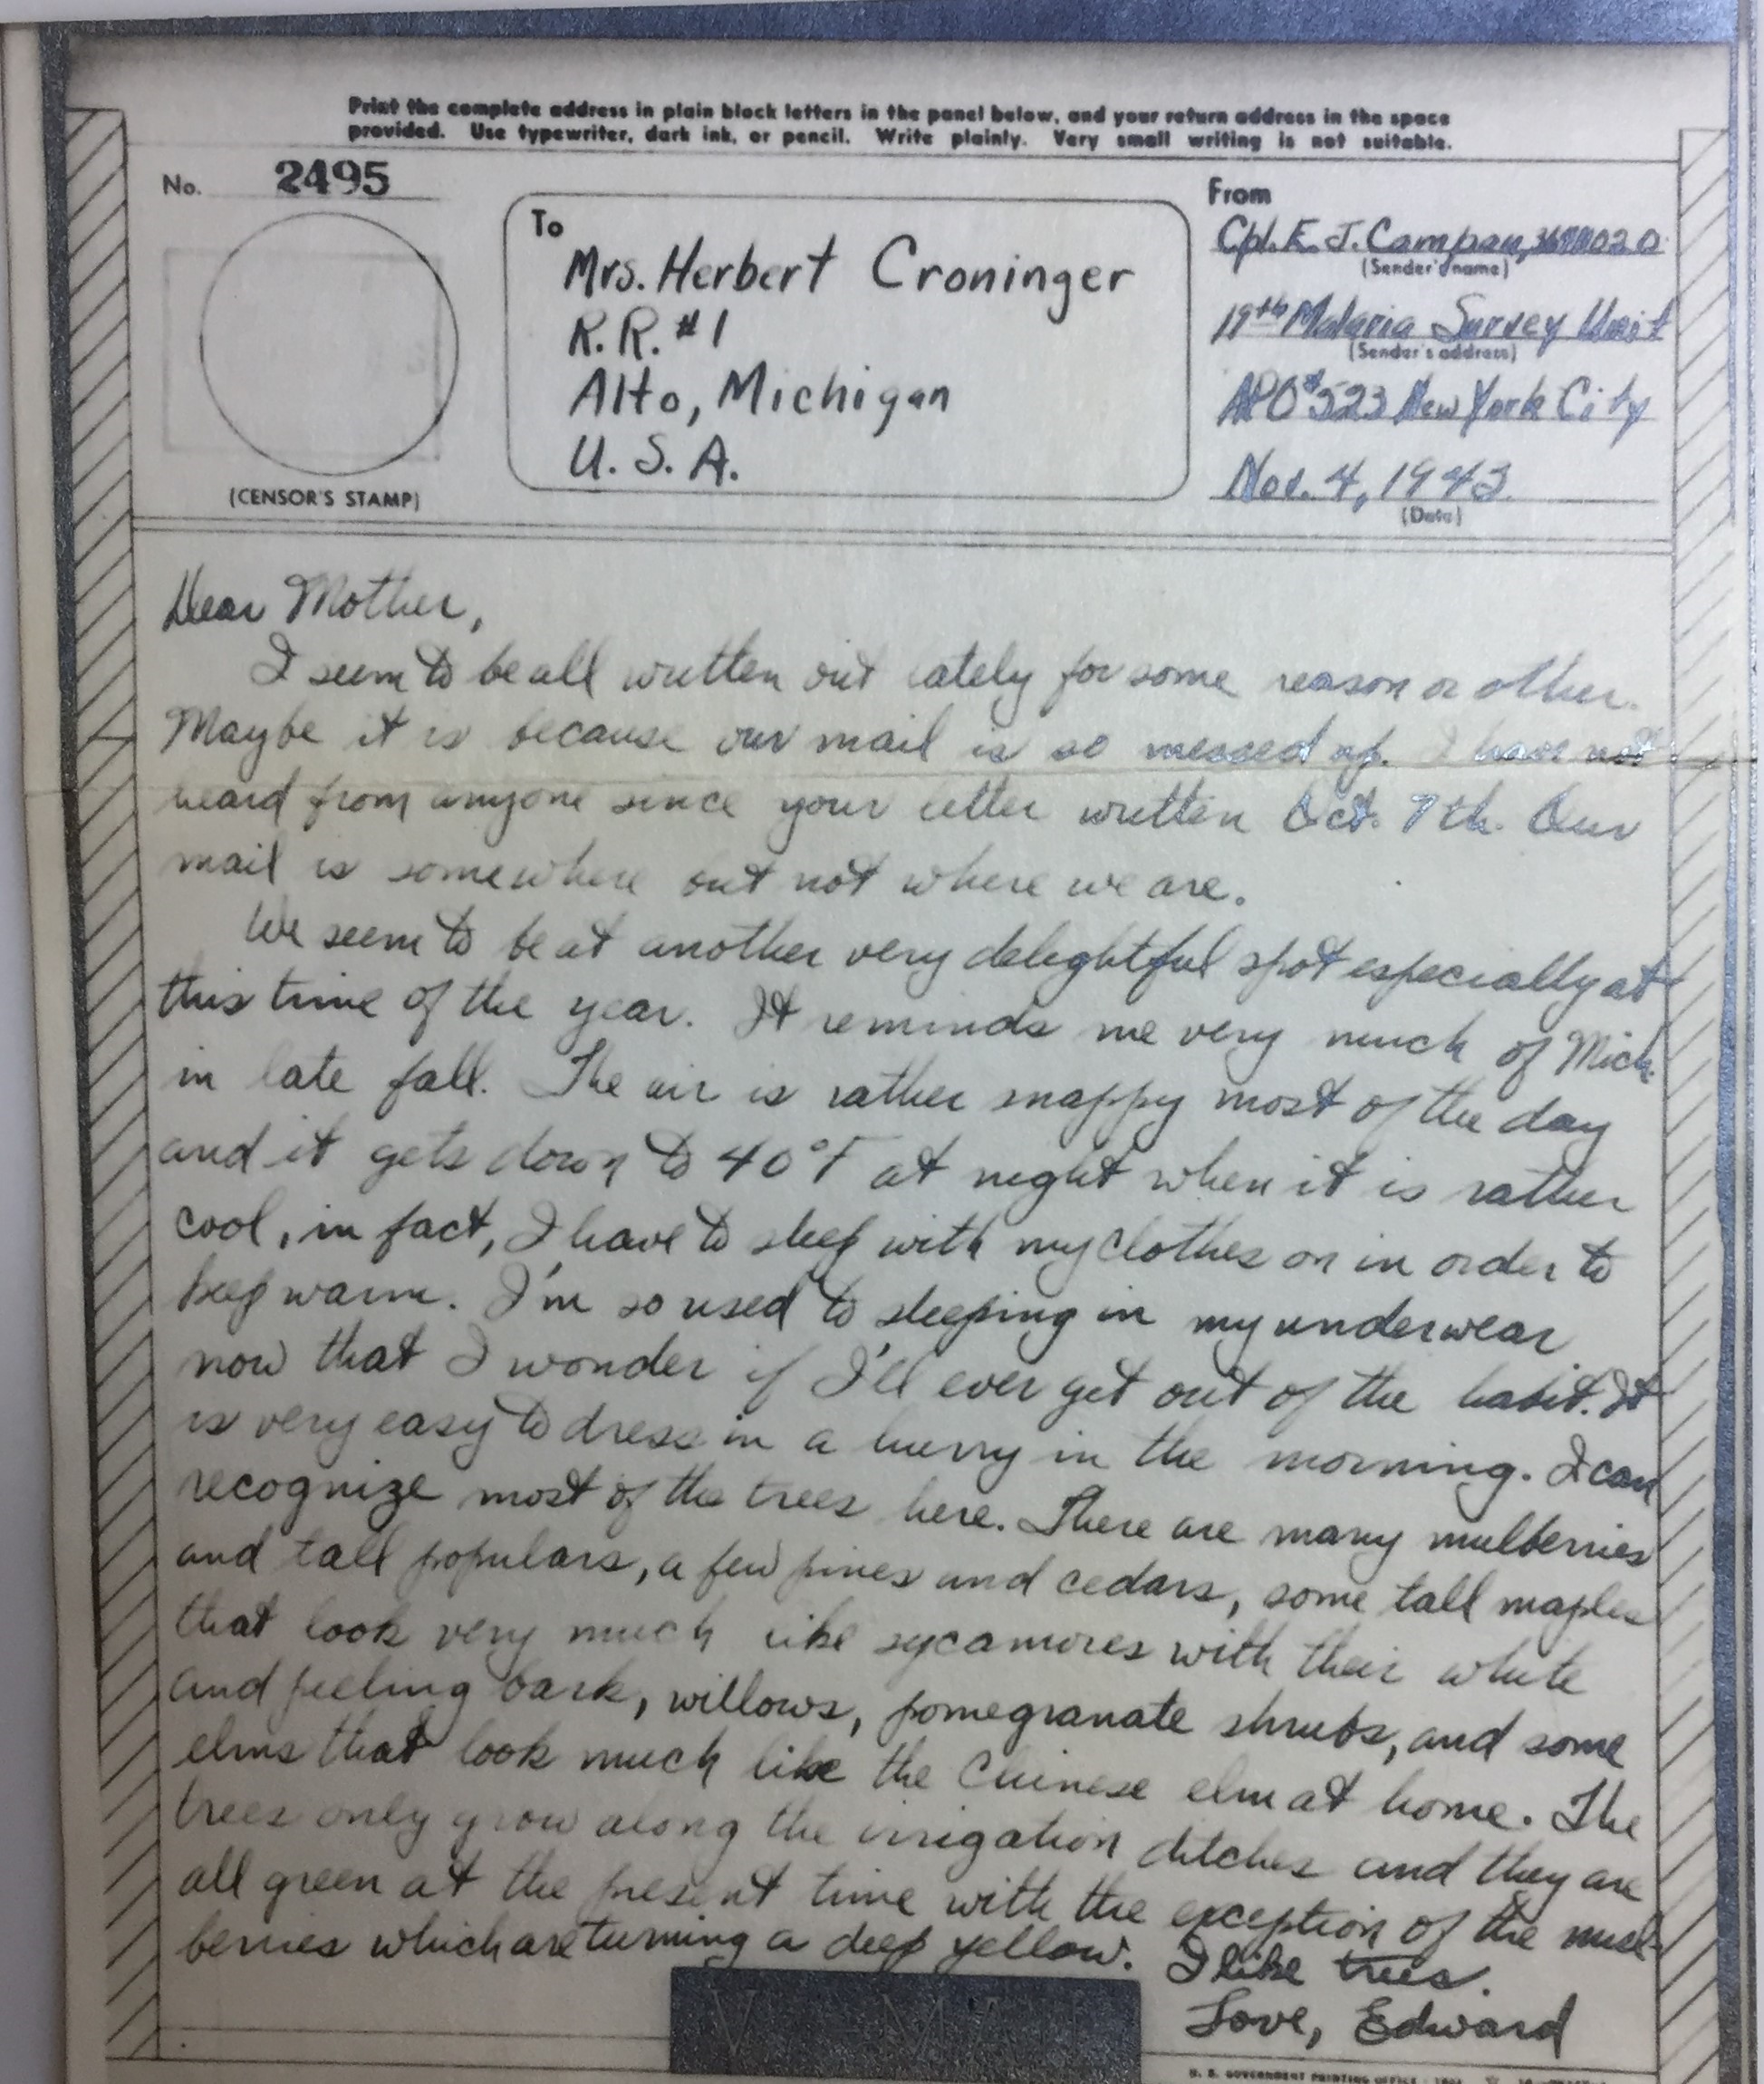 Print the complete address in plain block letters in the panel below, and your return address in the space
provided. Use typewriter, dark ink, or pencil. Write plainly. Very small writing is not suitable.
No. 2495
(CENSOR'S STAMP)
To
Mrs. Herbert Croninger
R.R. #1
Alto, Michigan
U. S. A.
From
Cpl. E. J. Campau,
(Sender's name)
19th Malaria Survey Unit
(Sender's address)
APO #523 New York City
Nov. 4, 1943
(Date)
Dear Mother,
I seem to be all written out lately for some reason or other.
Maybe it is because our mail is so messed up. I have not
heard from anyone since your letter written Oct. 7th. Our
mail is somewhere but not where we are.
We seem to be at another very delightful spot especially at
this time of the year. It reminds me very much of Mich.
in late fall. The air is rather snappy most of the day
and it gets down to 40°F at night when it is rather
cool, in fact, I have to sleep with my clothes on in order to
keep warm. I'm so used to sleeping in my underwear
now that I wonder if I'll ever get out of the habit. It
is very easy to dress in a hurry in the morning. I can
recognize most of the trees here. There are many mulberries
and tall populars, a few pines and cedars, some tall maples
that look very much like sycamores with their white
and peeling bark, willows, pomegranate shrubs, and some
elms that look much like the Chinese elm at home. The
trees only grow along the irrigation ditches and they are
all green at the present time with the exception of the mul-
berries which are turning a deep yellow. I like trees.
Love, Edward
V-MAIL
U. S. GOVERNMENT PRINTING OFFICE